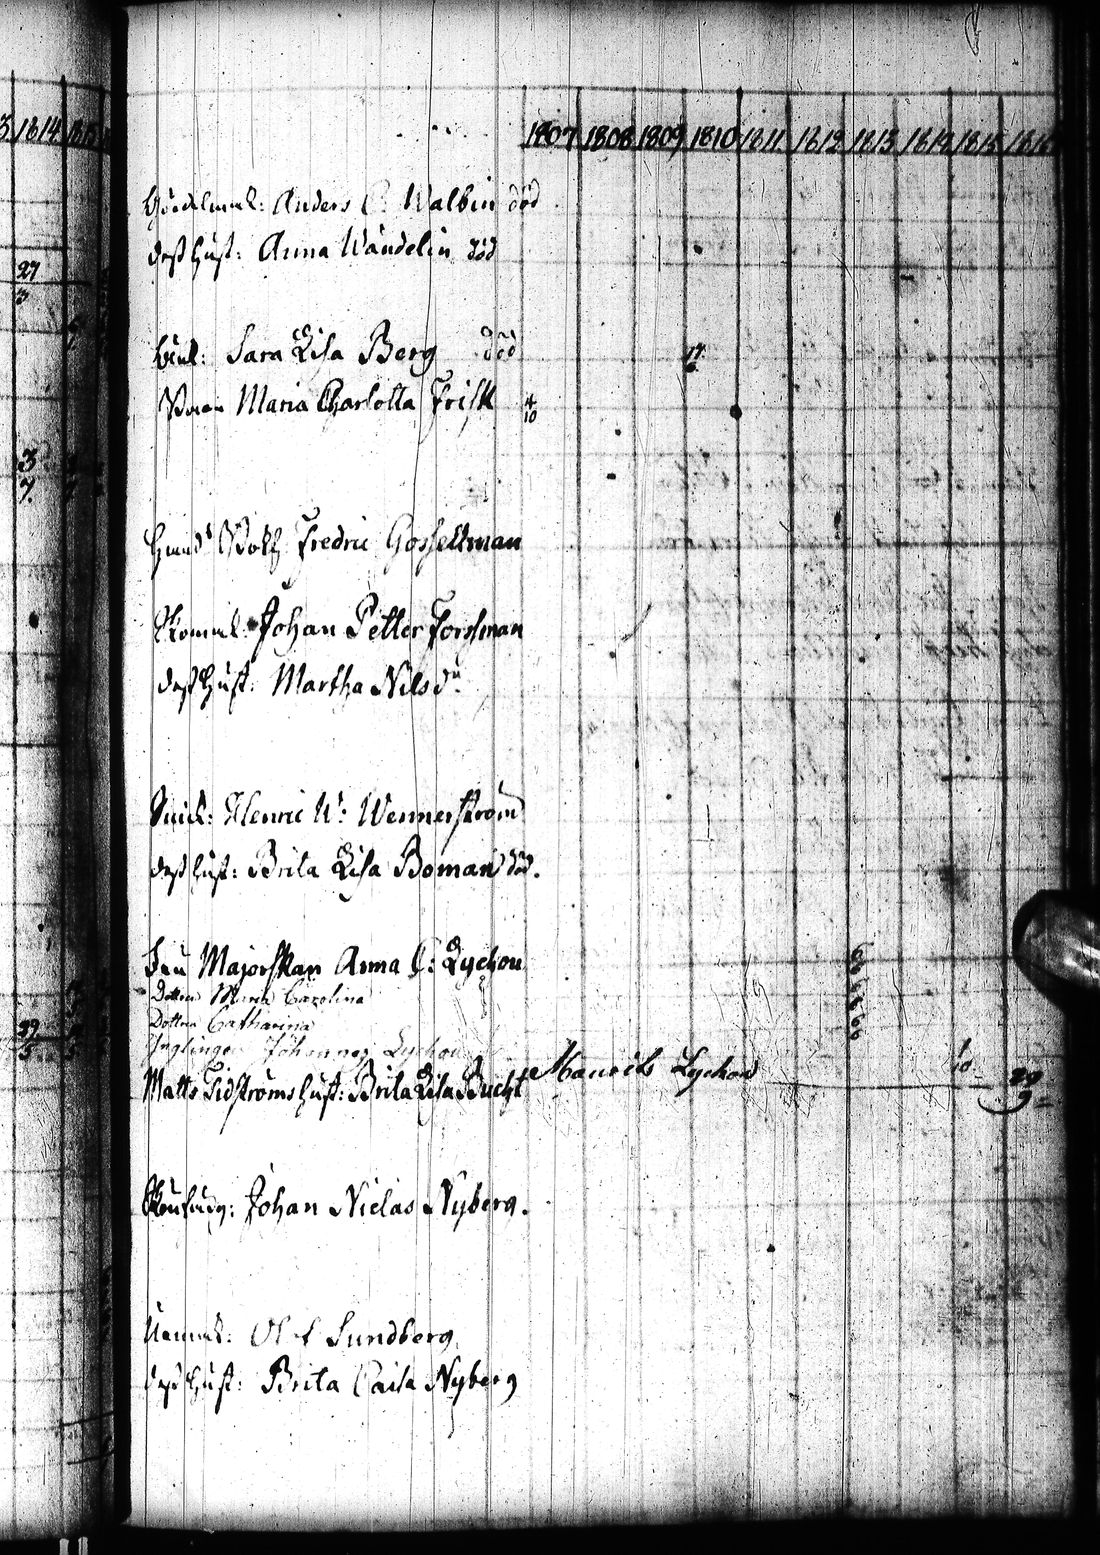 3 1814 1815
1807 1808 1809 1810 1811 1812 1813 1814 1815 1816
Anders C: Walbin död
dess Hust: Anna Wandelin död
27
3
Enk: Sara Lisa Berg död 17 6
Maria Charlotta Frisk 4 10
3
7
Fredric Gosselman
Johan Petter Forssman
dess Hust: Martha Nilsdr.
Snick: Henric W: Wennerström
dess Hust: Brita Lisa Boman död.
Fru Majorskan Anna C: Lychou 6
Dottren Maria Carolina
Dottren Catharina
29
5
Ynglingen Johannes Lychou
Matts Tidströms Hust: Brita Lisa Bucht Mauritz Lychou 1 10 29 9
Johan Niclas Nyberg.
Olof Sundberg
dess Hust: Brita Caisa Nyberg